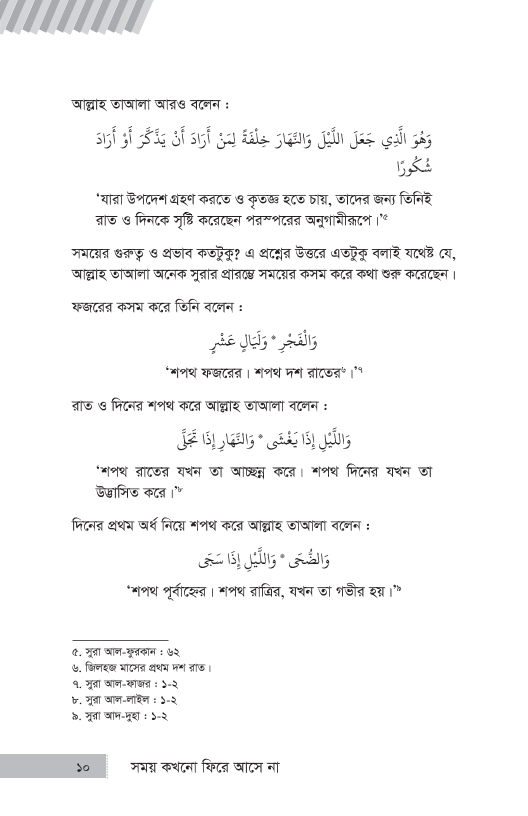 আল্লাহ তাআলা আরও বলেন :
وَهُوَ الَّذِي جَعَلَ اللَّيْلَ وَالنَّهَارَ خِلْفَةً لِمَنْ أَرَادَ أَنْ يَذَّكَّرَ أَوْ أَرَادَ
شُكُورًا
‘যারা উপদেশ গ্রহণ করতে ও কৃতজ্ঞ হতে চায়, তাদের জন্য তিনিই
রাত ও দিনকে সৃষ্টি করেছেন পরস্পরের অনুগামীরূপে।’৫
সময়ের গুরুত্ব ও প্রভাব কতটুকু? এ প্রশ্নের উত্তরে এতটুকু বলাই যথেষ্ট যে,
আল্লাহ তাআলা অনেক সুরার প্রারম্ভে সময়ের কসম করে কথা শুরু করেছেন।
ফজরের কসম করে তিনি বলেন :
وَالْفَجْرِ * وَلَيَالٍ عَشْرٍ
‘শপথ ফজরের। শপথ দশ রাতের৬।’৭
রাত ও দিনের শপথ করে আল্লাহ তাআলা বলেন :
وَاللَّيْلِ إِذَا يَغْشَى * وَالنَّهَارِ إِذَا تَجَلَّى
‘শপথ রাতের যখন তা আচ্ছন্ন করে। শপথ দিনের যখন তা
উদ্ভাসিত করে।’৮
দিনের প্রথম অর্ধ নিয়ে শপথ করে আল্লাহ তাআলা বলেন :
وَالضُّحَى * وَاللَّيْلِ إِذَا سَجَى
‘শপথ পূর্বাহ্নের। শপথ রাত্রির, যখন তা গভীর হয়।’৯
৫. সুরা আল-ফুরকান : ৬২
৬. জিলহজ মাসের প্রথম দশ রাত।
৭. সুরা আল-ফাজর : ১-২
৮. সুরা আল-লাইল : ১-২
৯. সুরা আদ-দুহা : ১-২
১০ সময় কখনো ফিরে আসে না